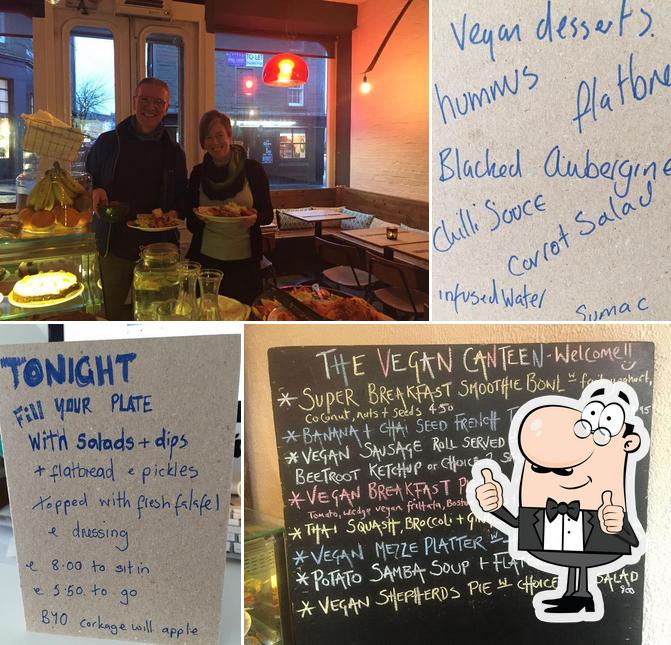 TO LET
Vegan desserts.
hummus
flatbre
Blacked Aubergine
Chilli Sauce
Carrot Salad
infused Water
Sumac
TONIGHT
Fill YOUR PLATE
With Salads + dips
+ flatbread e pickles
topped with fresh falafel
e dressing
e 8.00 to sit in
e 5.50 to go
BYO corkage will apple
THE VEGAN CANTEEN - Welcome!!
* SUPER BREAKFAST SMOOTHIE BOWL w
Coconut, nuts + seeds 4.50
* BANANA + CHAI SEED FRENCH T
* VEGAN SAUSAGE ROLL SERVED
BEETROOT KETCHUP or CHOICE
* VEGAN BREAKFAST P
Tomato, wedge vegan frittata, Bost
* THAI SQUASH, BROCCOLI +
* VEGAN MEZZE PLATTER w
* POTATO SAMBA SOUP + FLA
* VEGAN SHEPHERDS PIE w CHOICE SALAD